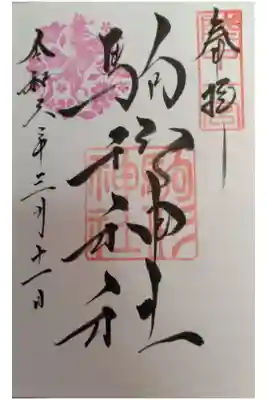 奉拝
駒形神社
令和六年三月十一日
駒形
神社